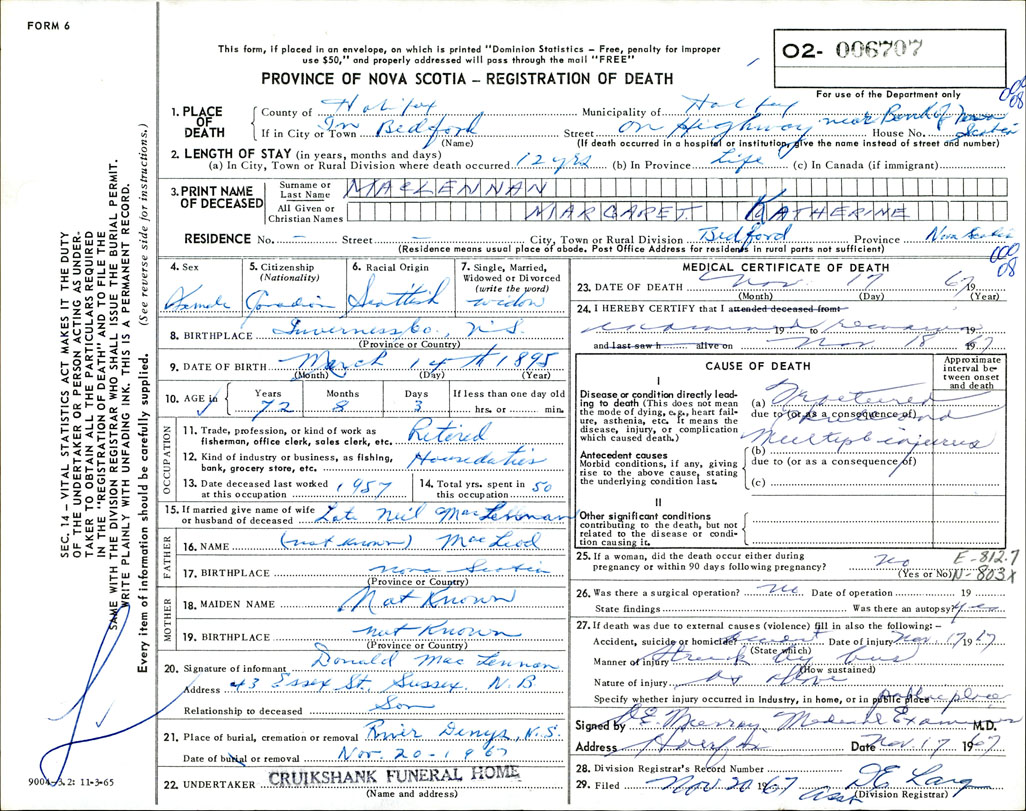 FORM 6
This form, if placed in an envelope, on which is printed "Dominion Statistics – Free, penalty for improper
use $50," and properly addressed will pass through the mail "FREE"
PROVINCE OF NOVA SCOTIA – REGISTRATION OF DEATH
02- 006707
For use of the Department only
000
08
1. PLACE OF DEATH
County of Halifax Municipality of Halifax
If in City or Town In Bedford (Name) Street on Highway near Bank of Nova Scotia House No.
(If death occurred in a hospital or institution, give the name instead of street and number)
2. LENGTH OF STAY (in years, months and days)
(a) In City, Town or Rural Division where death occurred 12 yrs (b) In Province Life (c) In Canada (if immigrant)
3. PRINT NAME OF DECEASED
Surname or Last Name MACLENNAN
All Given or Christian Names MARGARET KATHERINE
RESIDENCE No. – Street – City, Town or Rural Division Bedford Province Nova Scotia
(Residence means usual place of abode. Post Office Address for residents in rural parts not sufficient)
000
08
4. Sex Female
5. Citizenship (Nationality) Canadian
6. Racial Origin Scottish
7. Single, Married, Widowed or Divorced (write the word) widow
8. BIRTHPLACE Inverness Co., N.S.
(Province or Country)
9. DATE OF BIRTH March 14th 1895
(Month) (Day) (Year)
10. AGE in Years 72 Months 8 Days 3 If less than one day old hrs. or min.
OCCUPATION
11. Trade, profession, or kind of work as fisherman, office clerk, sales clerk, etc. Retired
12. Kind of industry or business, as fishing, bank, grocery store, etc. Housedaties
13. Date deceased last worked at this occupation 1957
14. Total yrs. spent in this occupation 50
15. If married give name of wife or husband of deceased Late Neil MacLennan
FATHER
16. NAME (not known) MacLeod
17. BIRTHPLACE Nova Scotia
(Province or Country)
MOTHER
18. MAIDEN NAME Not Known
19. BIRTHPLACE not Known
(Province or Country)
20. Signature of informant Donald MacLennan
Address 43 Essex St. Sussex. N.B
Relationship to deceased Son
21. Place of burial, cremation or removal River Denys, N.S.
Date of burial or removal Nov. 20 - 1967
22. UNDERTAKER CRUIKSHANK FUNERAL HOME
(Name and address)
MEDICAL CERTIFICATE OF DEATH
23. DATE OF DEATH Nov. 17 1967
(Month) (Day) (Year)
24. I HEREBY CERTIFY that I attended deceased from
examined 19 to remains 19
and last saw h alive on Nov 18 1967
CAUSE OF DEATH
Approximate interval between onset and death
I
Disease or condition directly leading to death (This does not mean the mode of dying, e.g., heart failure, asthenia, etc. It means the disease, injury, or complication which caused death.)
(a) Fractured
due to (or as a consequence of)
Multiple injuries
Antecedent causes
Morbid conditions, if any, giving rise to the above cause, stating the underlying condition last.
(b)
due to (or as a consequence of)
(c)
II
Other significant conditions
contributing to the death, but not related to the disease or condition causing it.
25. If a woman, did the death occur either during pregnancy or within 90 days following pregnancy? No
(Yes or No)
E-812.7
N-803X
26. Was there a surgical operation? no Date of operation 19
State findings Was there an autopsy? yes
27. If death was due to external causes (violence) fill in also the following:–
Accident, suicide or homicide? accident Date of injury Nov. 17 1967
(State which)
Manner of injury Struck by bus
(How sustained)
Nature of injury as above
Specify whether injury occurred in Industry, in home, or in public place Public place
Signed by D.E. Murray Medical Examiner M.D.
Address Halifax Date Nov. 17 1967
28. Division Registrar's Record Number
29. Filed Nov 20 1967 D E Lang
Asst (Division Registrar)
SEC. 14 – VITAL STATISTICS ACT MAKES IT THE DUTY
OF THE UNDERTAKER OR PERSON ACTING AS UNDER-
TAKER TO OBTAIN ALL THE PARTICULARS REQUIRED
IN THE "REGISTRATION OF DEATH" AND TO FILE THE
SAME WITH THE DIVISION REGISTRAR WHO SHALL ISSUE THE BURIAL PERMIT.
WRITE PLAINLY WITH UNFADING INK. THIS IS A PERMANENT RECORD.
Every item of information should be carefully supplied. (See reverse side for instructions.)
9004-3.2: 11-3-65